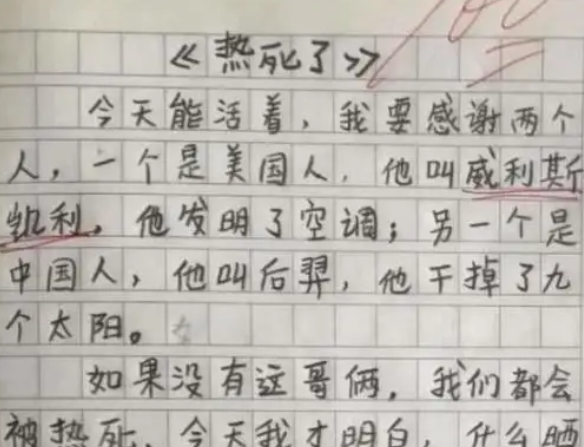 《热死了》
今天能活着，我要感谢两个
人，一个是美国人，他叫威利斯
凯利，他发明了空调；另一个是
中国人，他叫后羿，他干掉了九
个太阳。
如果没有这哥俩，我们都会
被热死，今天我才明白，什么晒